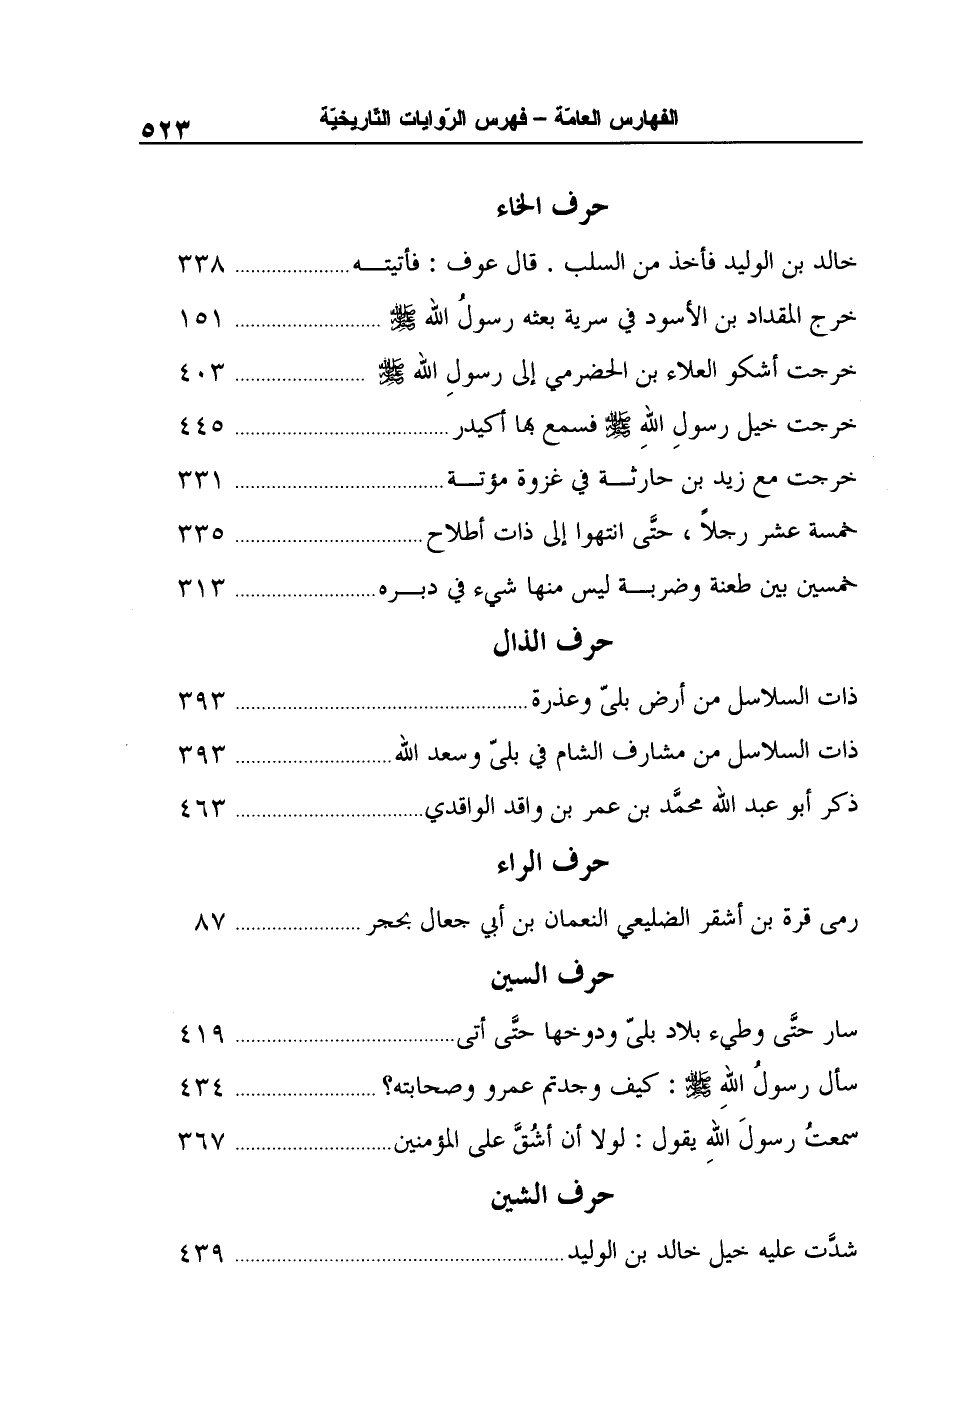 الفهارس العامّة – فهرس الرّوايات التّاريخيّة ٥٢٣
حرف الخاء
خالد بن الوليد فأخذ من السلب . قال عوف : فأتيتـــه ...................... ٣٣٨
خرج المقداد بن الأسود في سرية بعثه رسولُ الله ﷺ ............................ ١٥١
خرجت أشكو العلاء بن الحضرمي إلى رسولِ الله ﷺ ......................... ٤٠٣
خرجت خيل رسولِ اللهِ ﷺ فسمع بها أكيدر ......................................... ٤٤٥
خرجت مع زيد بن حارثـــة في غزوة مؤتـــة ........................................ ٣٣١
خمسة عشر رجلاً ، حتَّى انتهوا إلى ذات أطلاح .................................... ٣٣٥
خمسين بين طعنة وضربـــة ليس منها شيء في دبـــره ........................... ٣١٣
حرف الذال
ذات السلاسل من أرض بليّ وعذرة ........................................................ ٣٩٣
ذات السلاسل من مشارف الشام في بليّ وسعد الله .............................. ٣٩٣
ذكر أبو عبد الله محمَّد بن عمر بن واقد الواقدي .................................... ٤٦٣
حرف الراء
رمى قرة بن أشقر الضليعي النعمان بن أبي جعال بحجر ........................ ٨٧
حرف السين
سار حتَّى وطيء بلاد بليّ ودوخها حتَّى أتى .......................................... ٤١٩
سأل رسولُ اللهِ ﷺ : كيف وجدتم عمرو وصحابته؟ ........................... ٤٣٤
سمعتُ رسولَ اللهِ يقول : لولا أن أشُقَّ على المؤمنين .............................. ٣٦٧
حرف الشين
شدَّت عليه خيل خالد بن الوليد ............................................................... ٤٣٩